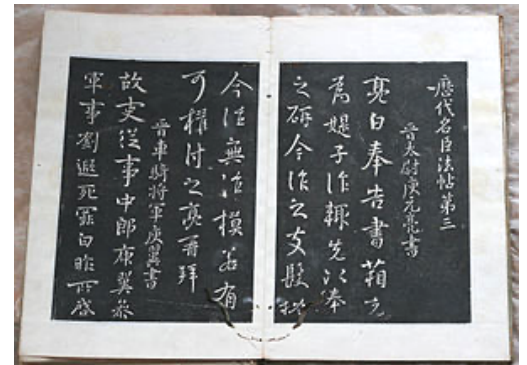 歷代名臣法帖第三
晉太尉庾元亮書
亮白奉告書箱先
為媞子作輒先以奉
之 今作之支髮
今往無往模若有
可 付之亮再拜
晉車騎將軍庾翼書
故吏從事中郎庾翼參
軍事劉遐死罪白昨